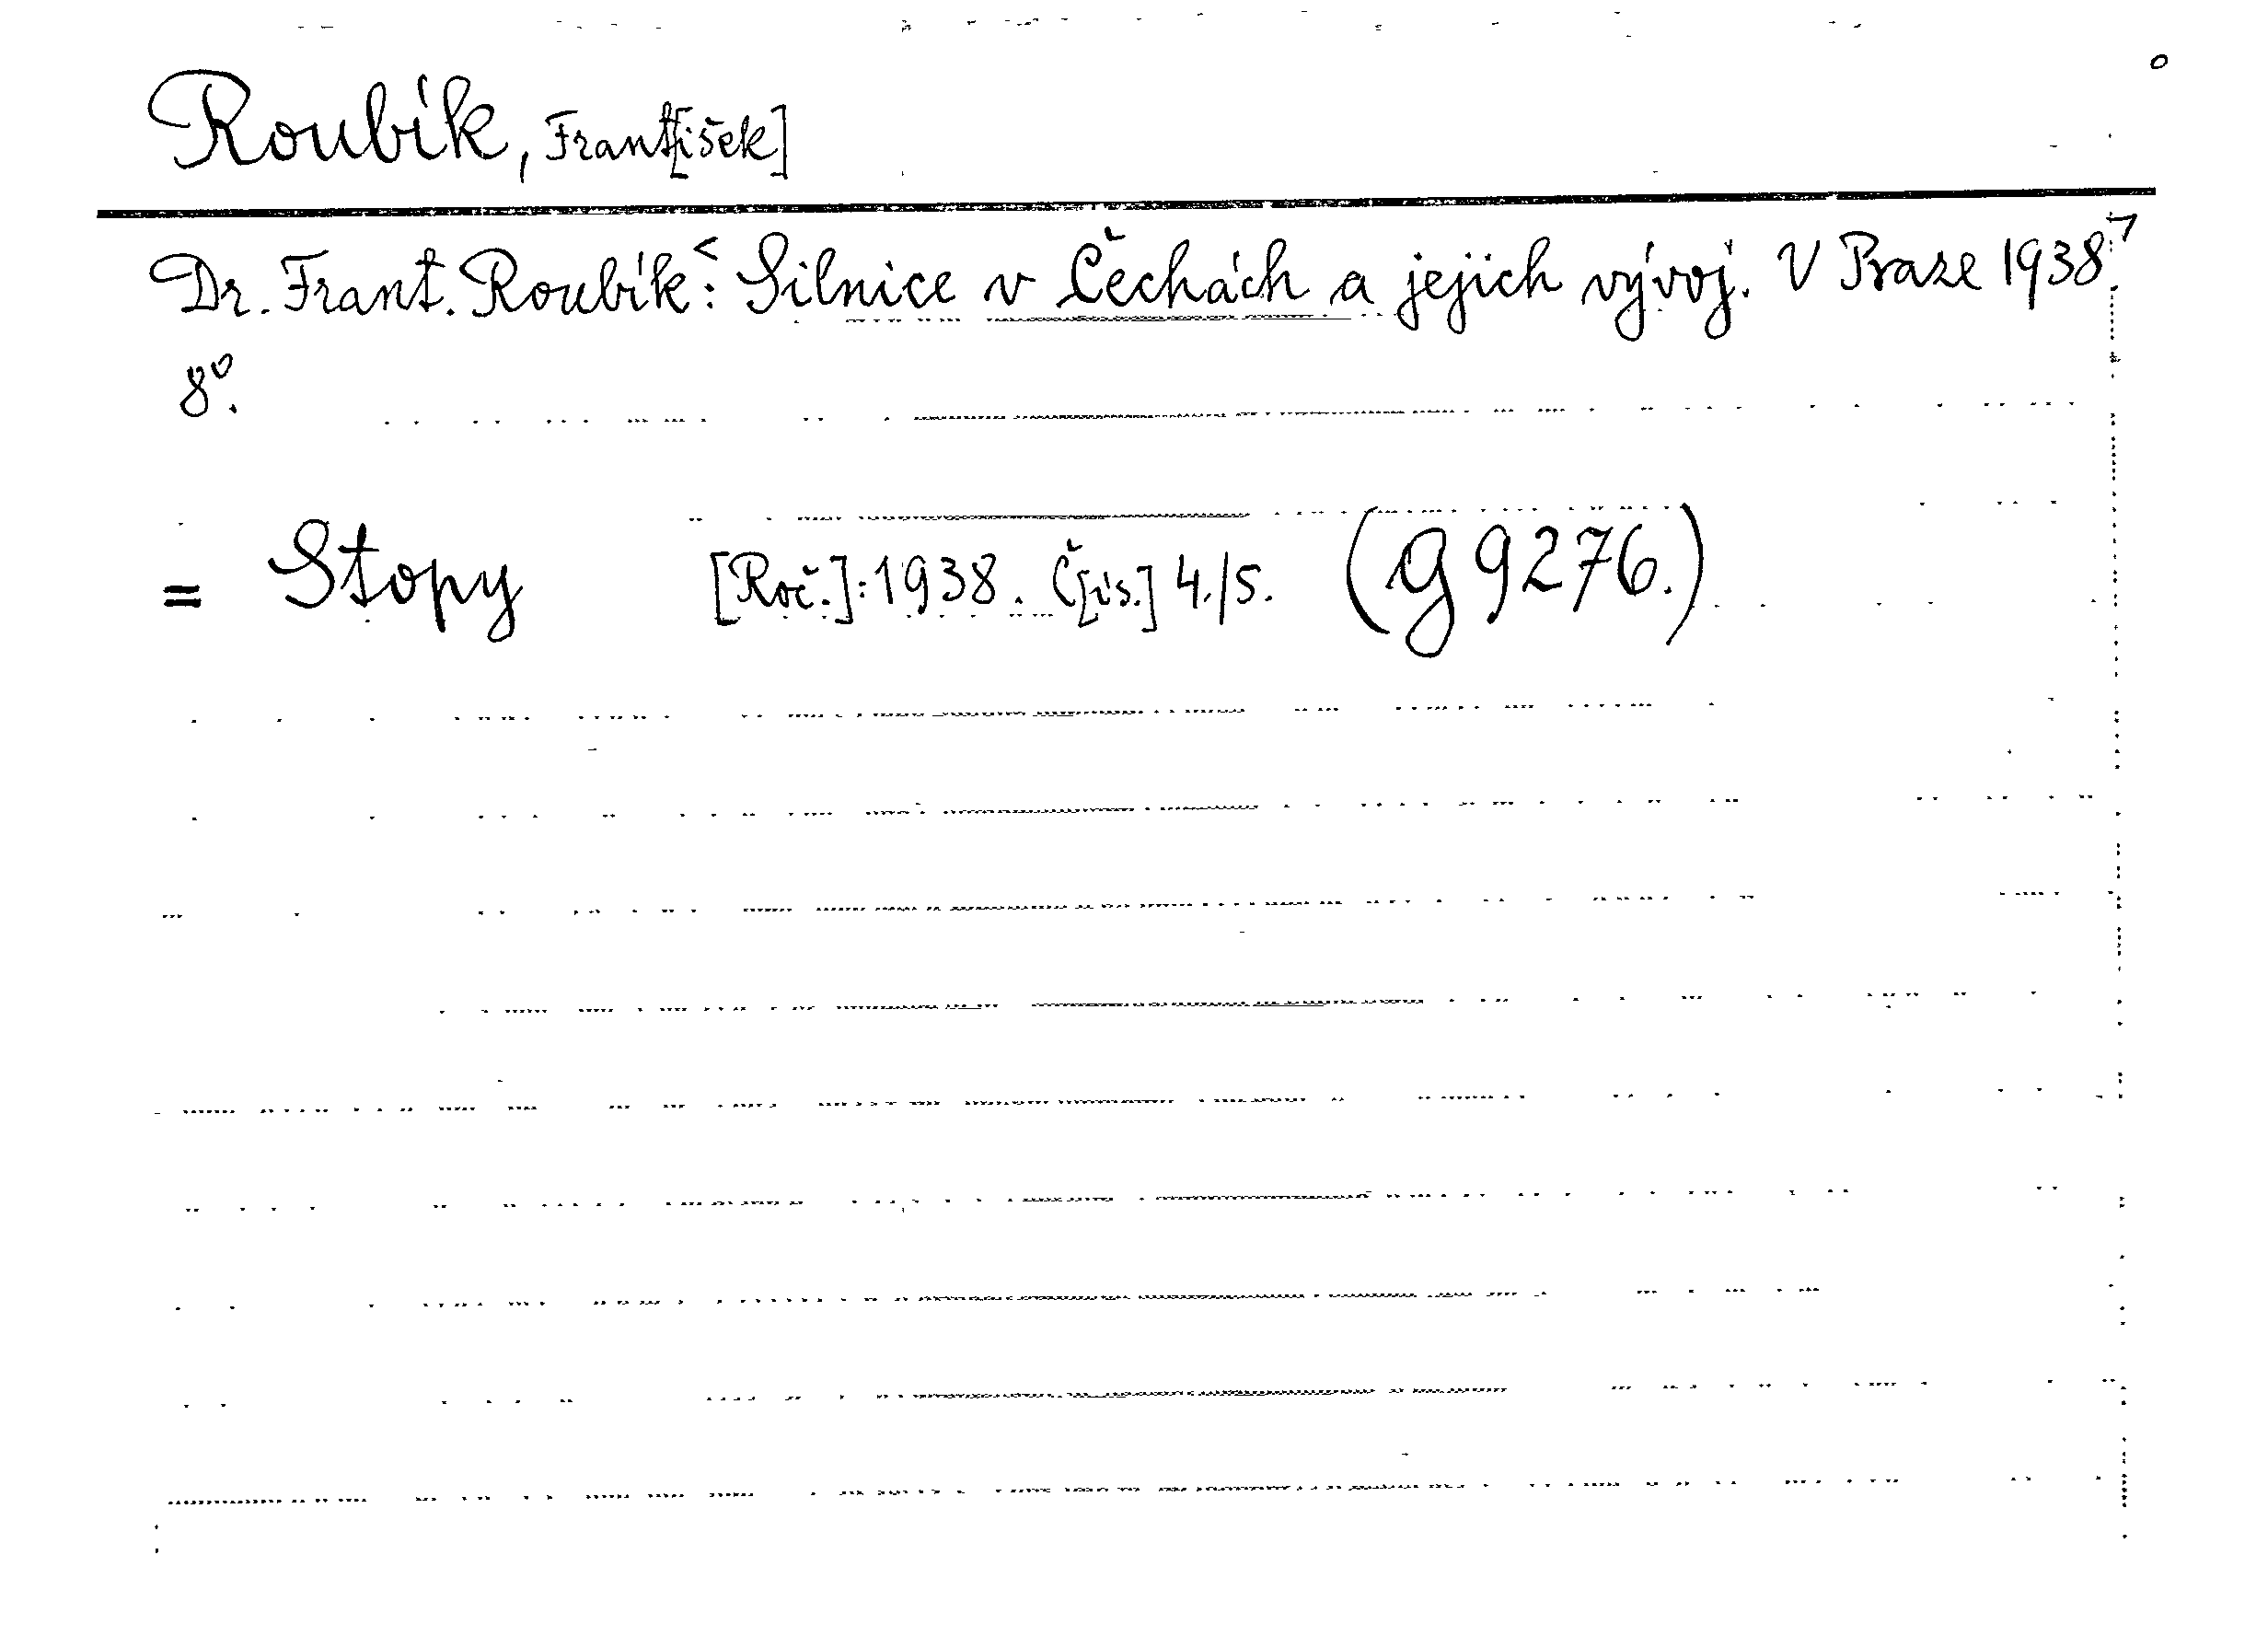 Roubík, Frant[išek]
Dr. Frant. Roubík<: Silnice v Čechách a jejich vývoj. V Praze 1938.>
8°.
= Stopy [Roč.]: 1938. Č[ís.] 4./5. (G 9276.)